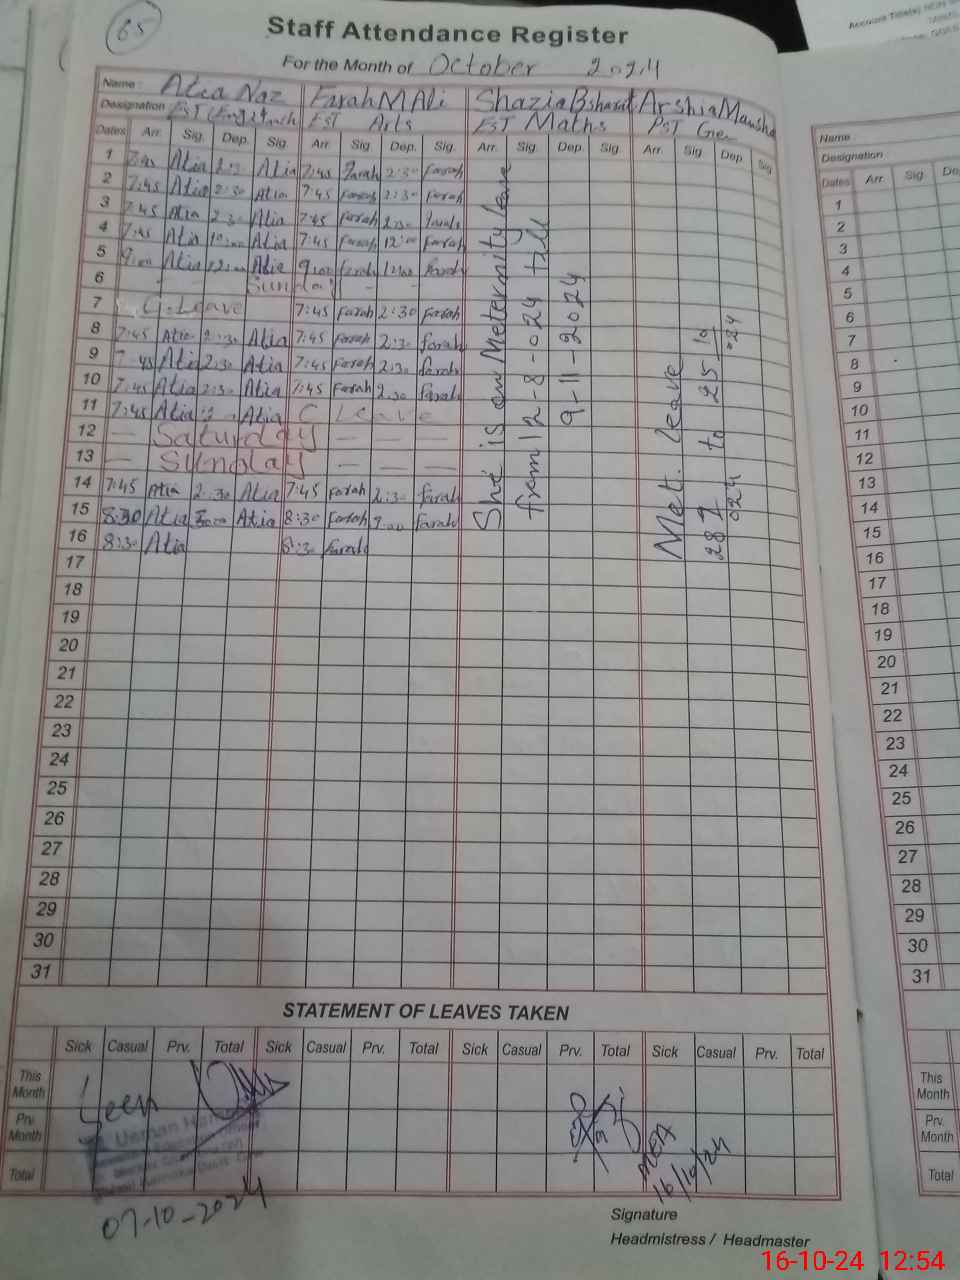 65
Staff Attendance Register
For the Month of October 2024
Name: Atia Naz Farah M Ali Shazia Bsharat Arshia Mansha
Designation EST EST Arts EST Maths PST Gen
Dates Arr. Sig. Dep. Sig. Arr. Sig. Dep. Sig. Arr. Sig. Dep. Sig. Arr. Sig. Dep. Sig
1 7:45 Atia Atia 7:45 Farah 2:30 Farah
2 7:45 Atia 2:30 Atia 7:45 Farah 2:30 Farah
3 7:45 Atia 2:30 Atia 7:45 Farah 2:30 Farah
4 7:45 Atia 12:00 Atia 7:45 Farah 12:00 Farah
5 9:00 Atia 12:00 Atia 9:00 Farah 12:00 Farah
6 - - Sunday - -
7 C. Leave 7:45 Farah 2:30 Farah
8 7:45 Atia 2:30 Atia 7:45 Farah 2:30 Farah
9 7:45 Atia 2:30 Atia 7:45 Farah 2:30 Farah
10 7:45 Atia 2:30 Atia 7:45 Farah 2:30 Farah
11 7:45 Atia Atia C Leave
12 — Saturday — — —
13 — Sunday — — —
14 7:45 Atia 2:30 Atia 7:45 Farah 2:30 Farah
15 8:30 Atia 3:00 Atia 8:30 Farah 3:00 Farah
16 8:30 Atia 8:30 Farah
She is on Meternity leave
from 12-8-024 till
9-11-2024
Met. leave
28 7 024 to 25 10 024
17
18
19
20
21
22
23
24
25
26
27
28
29
30
31
STATEMENT OF LEAVES TAKEN
Sick Casual Prv. Total Sick Casual Prv. Total Sick Casual Prv. Total Sick Casual Prv. Total
This Month
Prv. Month
Total
Seen
07-10-2024
MEA
16/10/24
Signature
Headmistress / Headmaster
Name
Designation
Dates Arr. Sig
1
2
3
4
5
6
7
8
9
10
11
12
13
14
15
16
17
18
19
20
21
22
23
24
25
26
27
28
29
30
31
This Month
Prv. Month
Total
16-10-24 12:54